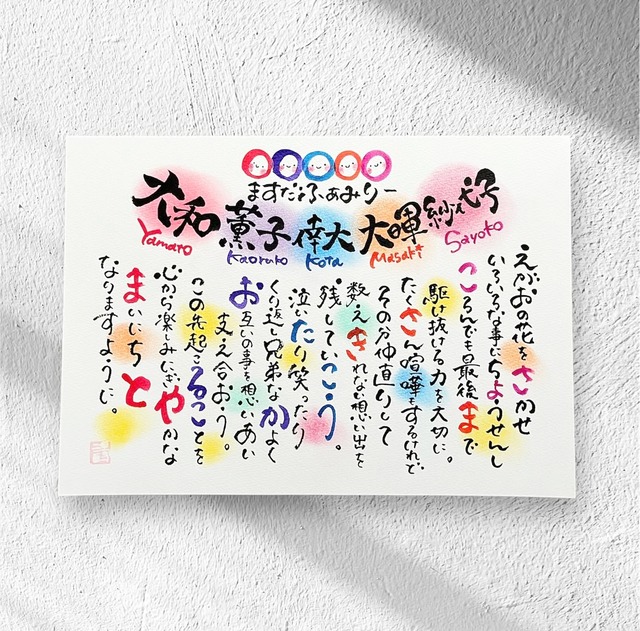 ますだふぁみりー
大和 薫子 倖大 大暉 紗代子
Yamato Kaoruko Kota Masaki Sayoko
えがおの花をさかせ
いろいろな事にちょうせんし
ころんでも最後まで
駆け抜ける力を大切に。
たくさん喧嘩もするけれど
その分仲直りして
数えきれない想い出を
残していこう。
泣いたり笑ったり
くり返し兄弟なかよく
お互いの事を想いあい
支え合おう。
この先起こることを
心から楽しみにぎやかな
まいにちと
なりますように。